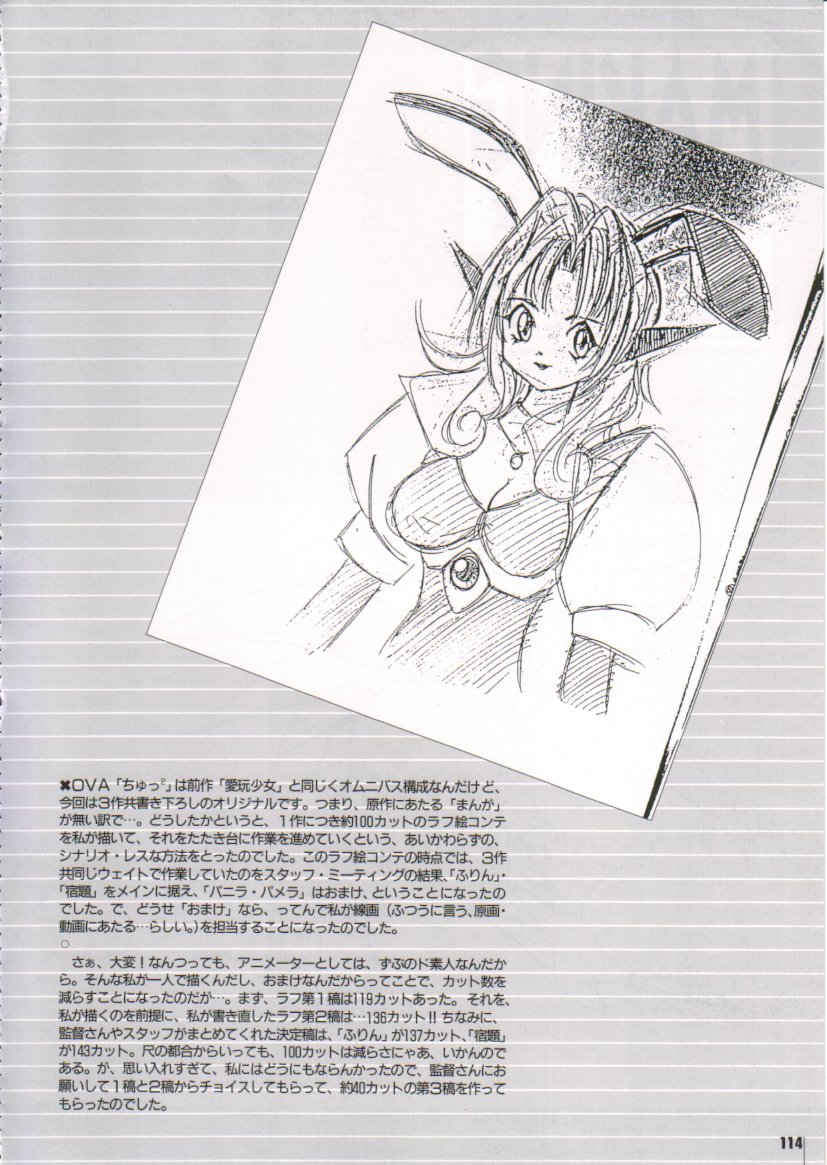 ✖OVA「ちゅっ²」は前作「愛玩少女」と同じくオムニバス構成なんだけど、
今回は3作共書き下ろしのオリジナルです。つまり、原作にあたる「まんが」
が無い訳で…。どうしたかというと、1作につき約100カットのラフ絵コンテ
を私が描いて、それをたたき台に作業を進めていくという、あいかわらずの、
シナリオ・レスな方法をとったのでした。このラフ絵コンテの時点では、3作
共同じウェイトで作業していたのをスタッフ・ミーティングの結果、「ふりん」・
「宿題」をメインに据え、「バニラ・パメラ」はおまけ、ということになったの
でした。で、どうせ「おまけ」なら、ってんで私が線画（ふつうに言う、原画・
動画にあたる…らしい。）を担当することになったのでした。
○
　さぁ、大変！なんつっても、アニメーターとしては、ずぶのド素人なんだか
ら。そんな私が一人で描くんだし、おまけなんだからってことで、カット数を
減らすことになったのだが…。まず、ラフ第1稿は119カットあった。それを、
私が描くのを前提に、私が書き直したラフ第2稿は…136カット!! ちなみに、
監督さんやスタッフがまとめてくれた決定稿は、「ふりん」が137カット、「宿題」
が143カット。尺の都合からいっても、100カットは減らさにゃあ、いかんので
ある。が、思い入れすぎて、私にはどうにもならんかったので、監督さんにお
願いして1稿と2稿からチョイスしてもらって、約40カットの第3稿を作って
もらったのでした。
114